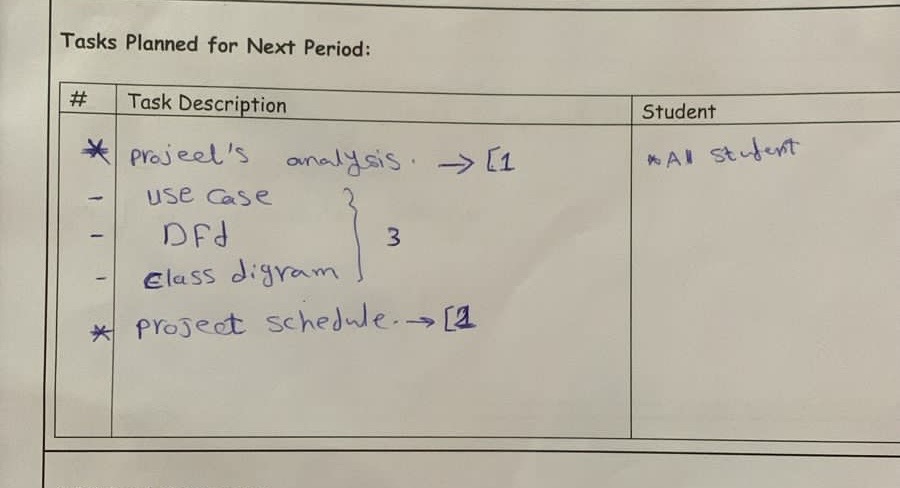 Tasks Planned for Next Period:
# Task Description Student
* project's analysis. → [1 * All Student
- use case
- DFd } 3
- Class digram
* project schedule. → [1